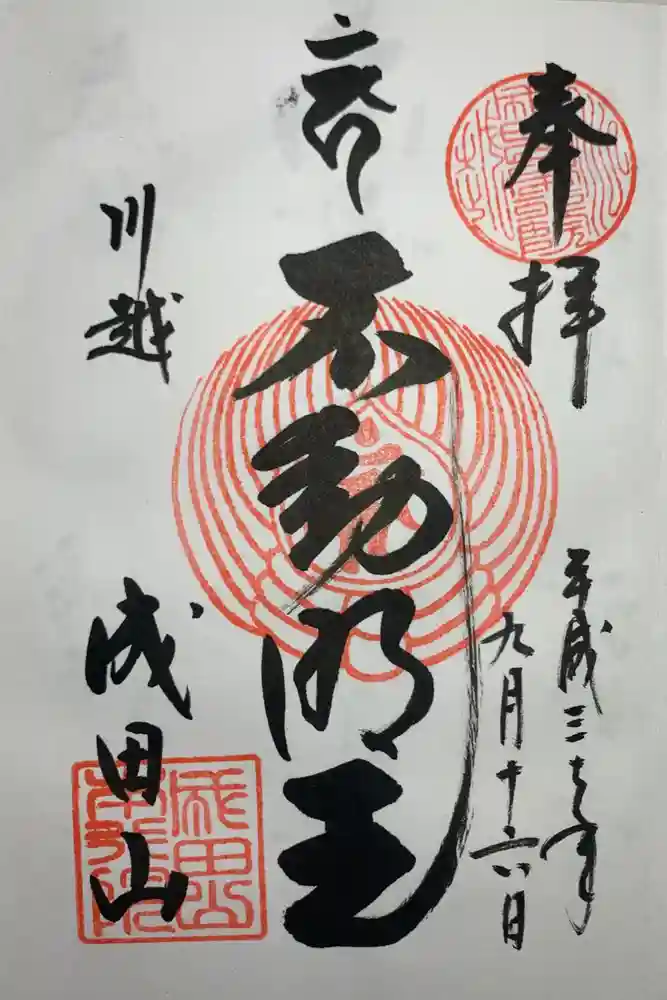 奉拝
平成 年
九月十六日
不動明王
川越
成田山
成田山
本行院